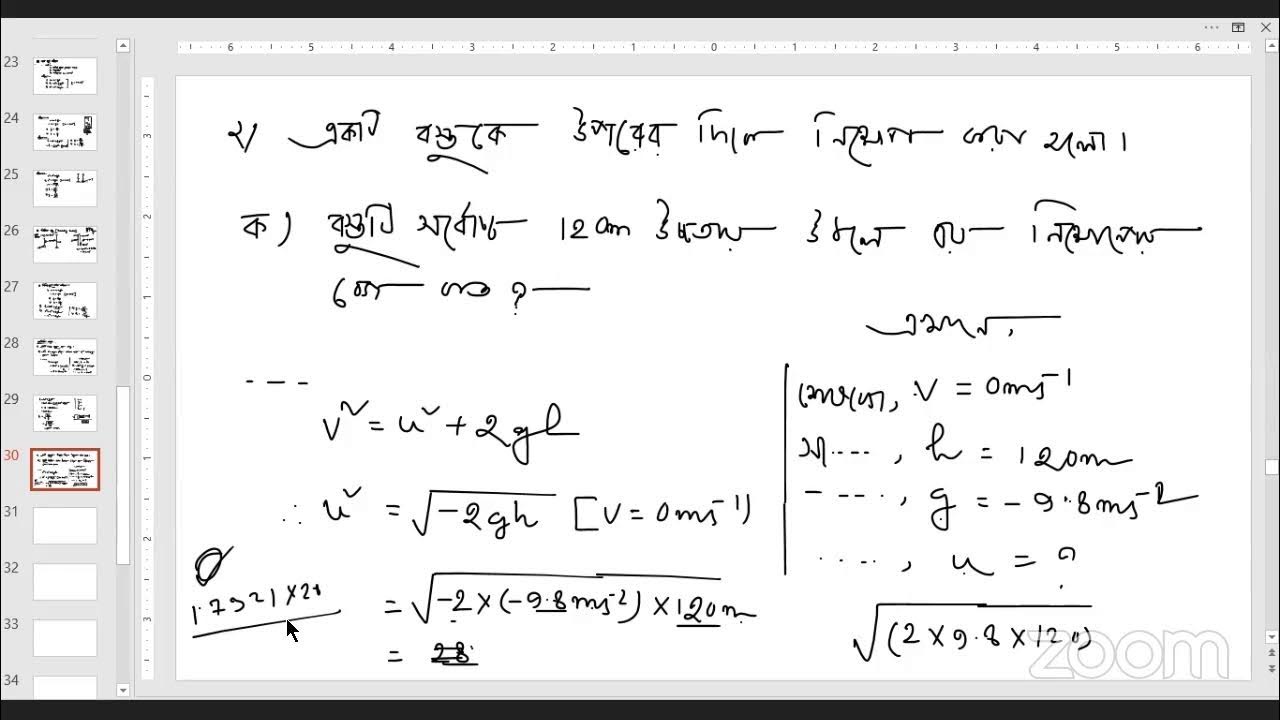 6 5 4 3 2 1 0 1 2 3 4 5 6
23
24
25
26
27
28
29
30
31
32
33
34
3
2
1
0
1
2
3
২। একটি বস্তুকে উপরের দিকে নিক্ষেপ করা হলো।
ক) বস্তুটি সর্বোচ্চ 120m উচ্চতায় উঠলে নিক্ষেপের
বেগ কত?
এখানে,
---
v² = u² + 2gh
∴ u² = √-2gh [V = 0ms⁻¹)
= √-2 × (-9.8ms⁻²) × 120m
= 28.
শেষবেগ, V = 0ms⁻¹
, h = 120m
- - - -, g = -9.8ms⁻²
...., u = ?
√(2 × 9.8 × 120)
zoom